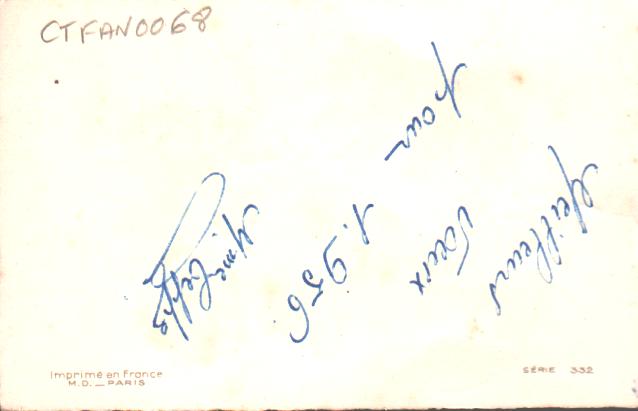 CTFAN0068
Meilleurs
Voeux
pour
1.956
Mme
Imprimé en France
M.D. _ PARIS
SÉRIE 332